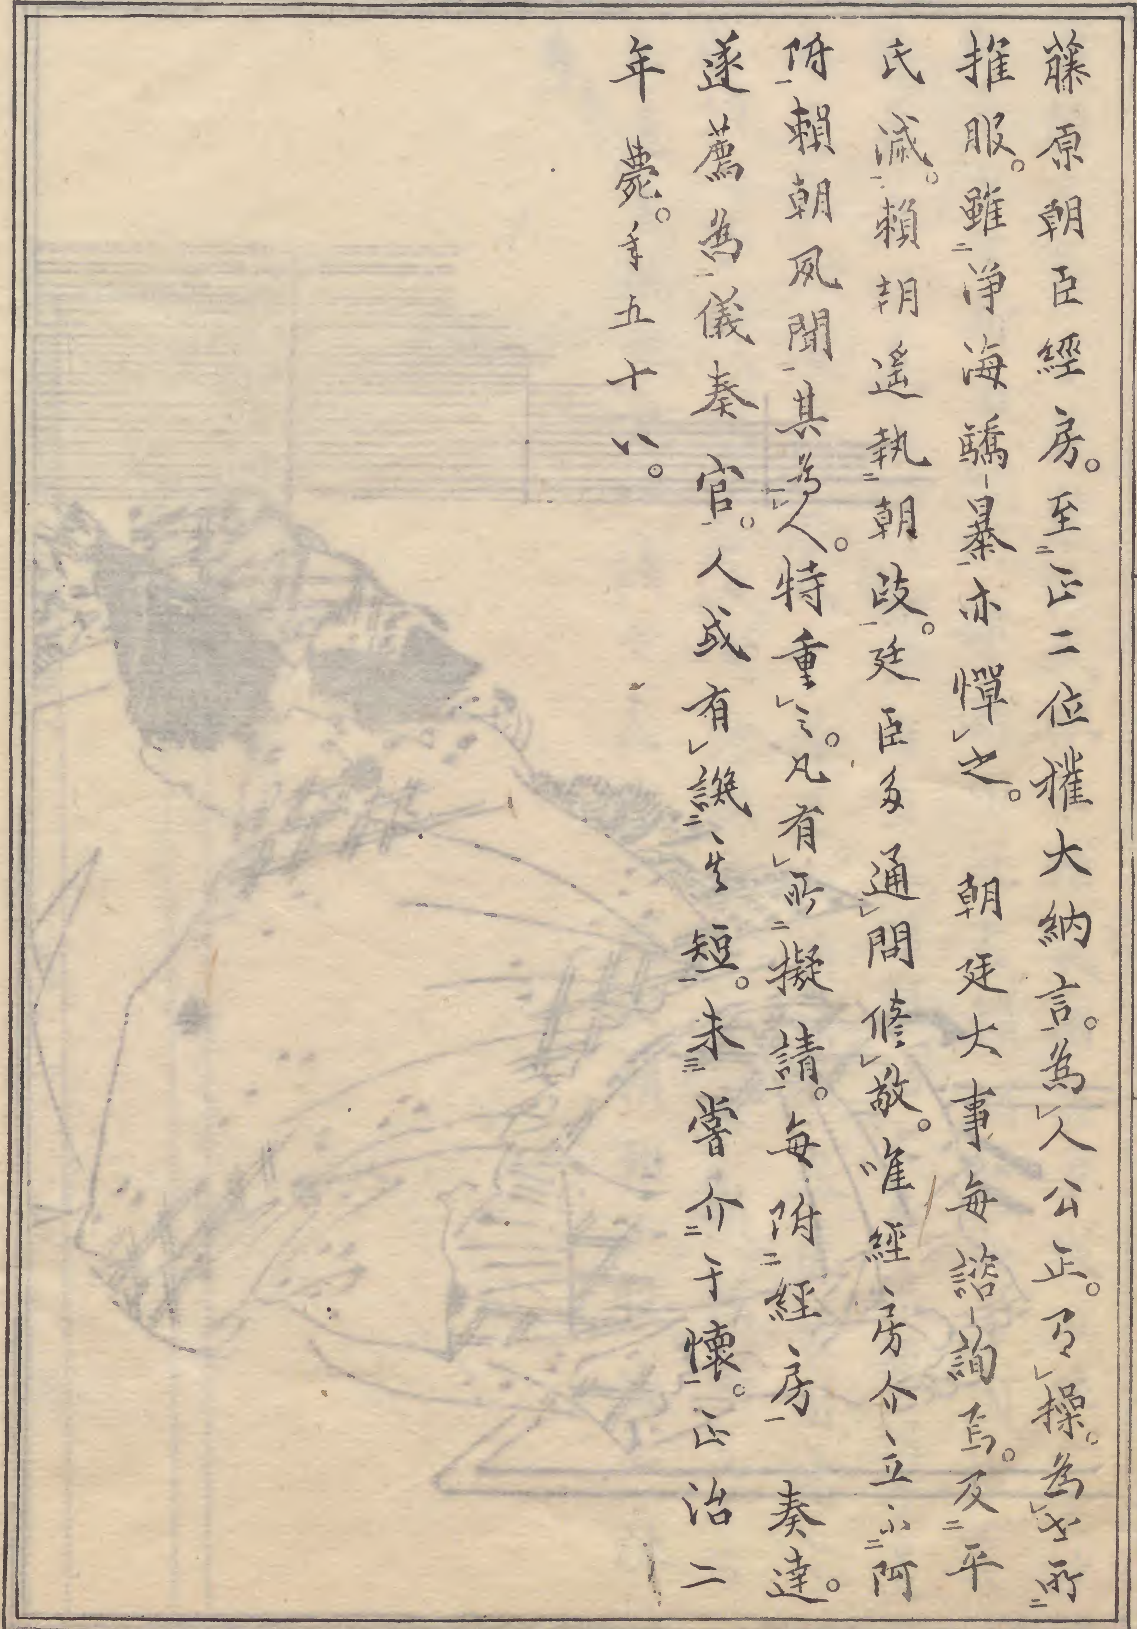 藤原朝臣經房。至正二位權大納言。為人公正。有操。為世所
推服。雖淨海驕暴亦憚之。　朝廷大事每諮詢焉。及平
氏滅。賴朝遙執朝政。廷臣多通問修敬。唯經房介立不阿
附。賴朝夙聞其為人。特重之。凡有所擬請。每附經房　奏達。
遂薦為議奏官。人或有譏其短。未嘗介于懷。正治二
年薨。年五十八。